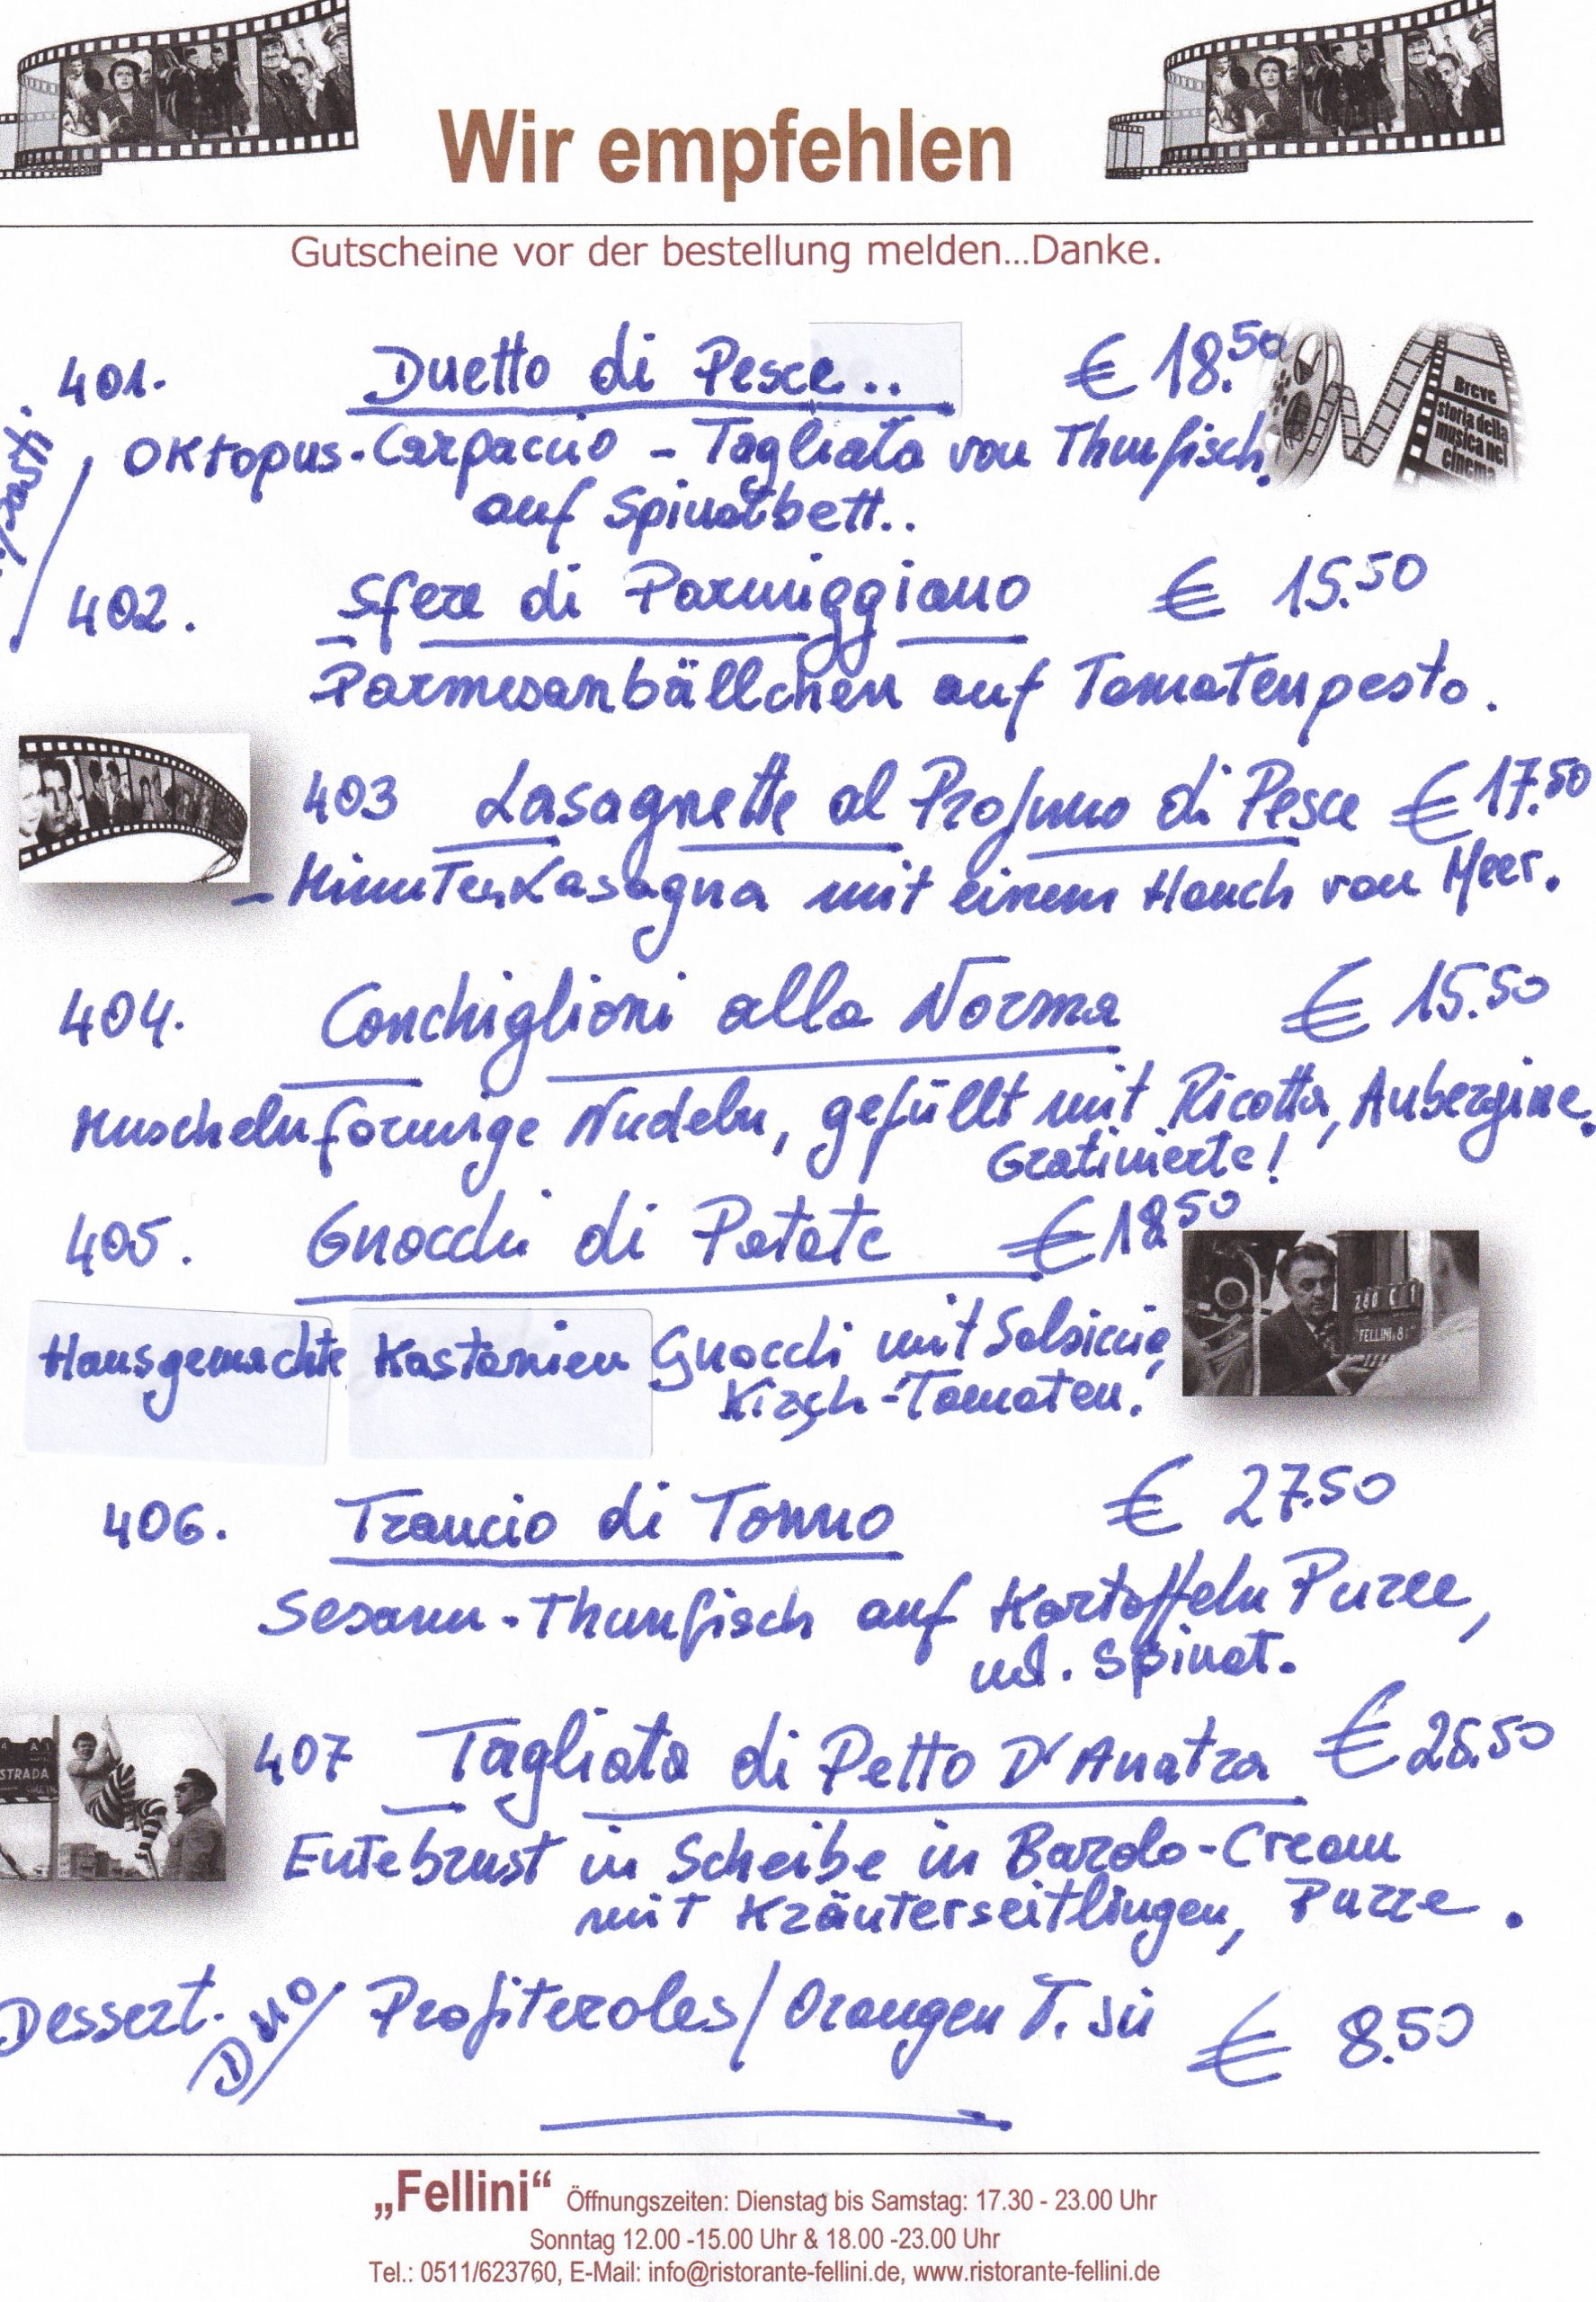 Wir empfehlen
Gutscheine vor der bestellung melden...Danke.
401. Duetto di Pesce.. € 18.50
Breve
storia della
musica nel
cinema
Oktopus-Carpaccio - Tagliata von Thunfisch.
auf Spinatbett..
402. Sfere di Parmiggiano € 15.50
Parmesanbällchen auf Tomatenpesto.
403 Lasagnette al Profumo di Pesce € 17.50
- Minuten Lasagna mit einem Hauch von Meer.
404. Conchiglioni alla Norma € 15.50
Muschelnformige Nudeln, gefüllt mit Ricotta, Aubergine.
Gratinierte!
405. Gnocchi di Patate € 18.50
Hausgemachte Kastanien Gnocchi mit Salsiccie,
Kirsch-Tomaten!
406. Trancio di Tonno € 27.50
Sesam-Thunfisch auf Kartoffeln Puree,
und. Spinat.
STRADA
407 Tagliata di Petto D'Anatra €
Entebrust in Scheibe in Barolo-Cream
mit Kräuterseitlingen, Purre.
Dessert. Duo/ Profiteroles/Orangen T. su € 8.50
„Fellini“ Öffnungszeiten: Dienstag bis Samstag: 17.30 - 23.00 Uhr
Sonntag 12.00 -15.00 Uhr & 18.00 -23.00 Uhr
Tel.: 0511/623760, E-Mail: info@ristorante-fellini.de, www.ristorante-fellini.de